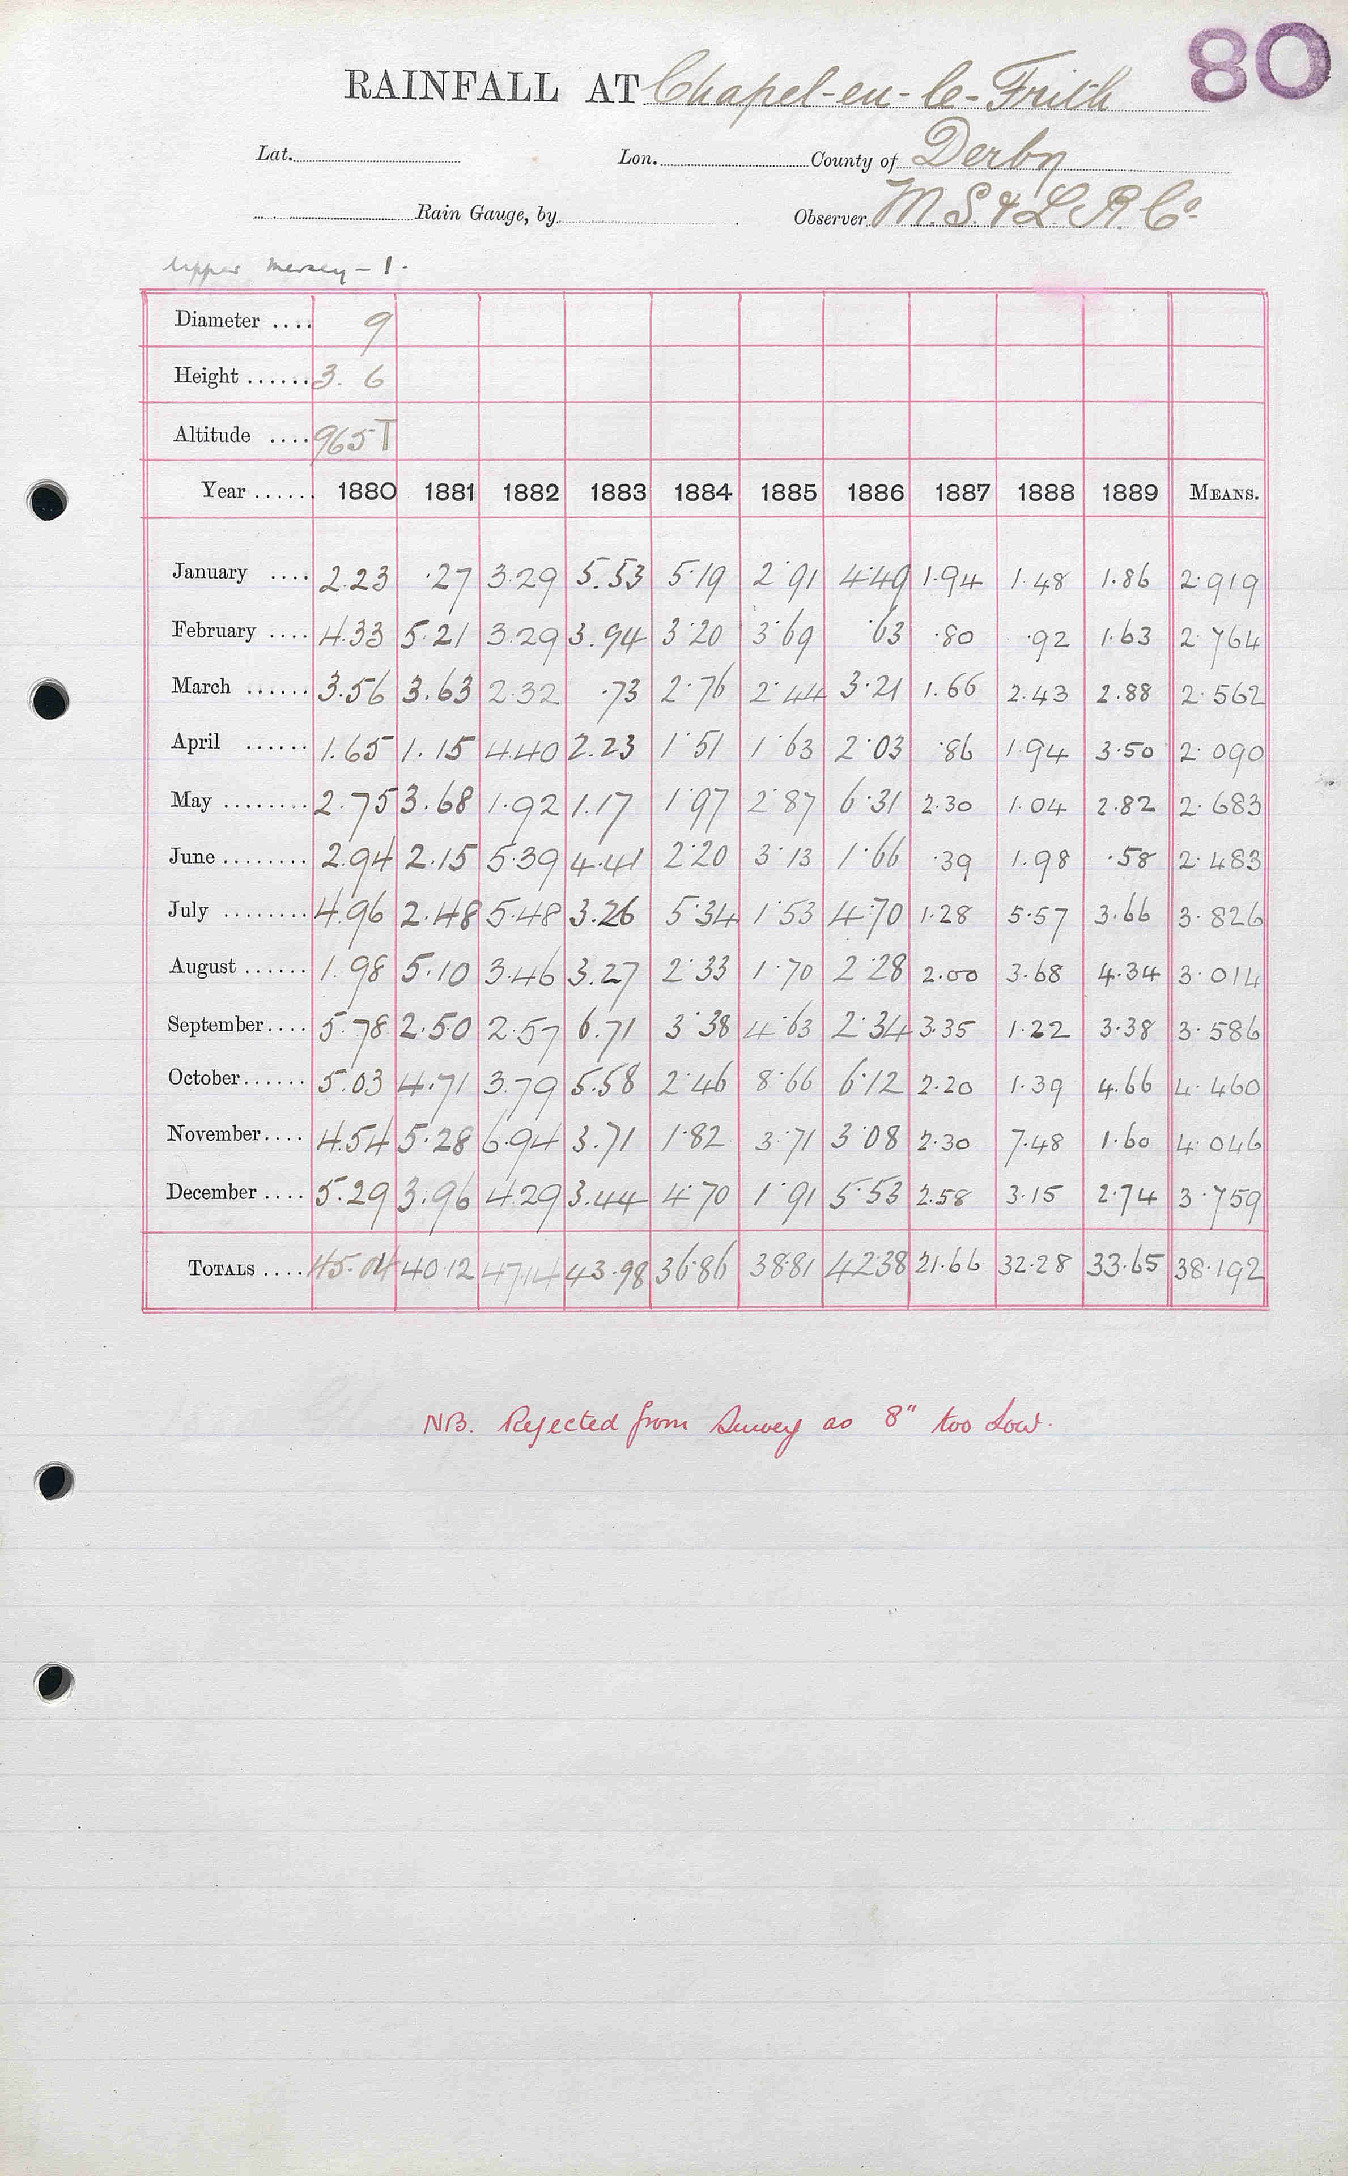 80
RAINFALL AT Chapel-en-le-Frith
Lat. Lon. County of Derby
Rain Gauge, by Observer M. S. & L. R. Co.
Upper Mersey - 1.
Diameter .... 9
Height ...... 3. 6
Altitude .... 965 T
Year ...... 1880 1881 1882 1883 1884 1885 1886 1887 1888 1889 MEANS.
January .... 2.23 .27 3.29 5.53 5.19 2.91 4.49 1.94 1.48 1.86 2.919
February .... 4.33 5.21 3.29 3.94 3.20 3.69 .63 .80 .92 1.63 2.764
March ...... 3.56 3.63 2.32 .73 2.76 2.44 3.21 1.66 2.43 2.88 2.562
April ...... 1.65 1.15 4.40 2.23 1.51 1.63 2.03 .86 1.94 3.50 2.090
May ........ 2.75 3.68 1.92 1.17 1.97 2.87 6.31 2.30 1.04 2.82 2.683
June ........ 2.94 2.15 5.39 4.41 2.20 3.13 1.66 .39 1.98 .58 2.483
July ........ 4.96 2.48 5.48 3.26 5.34 1.53 4.70 1.28 5.57 3.66 3.826
August ...... 1.98 5.10 3.46 3.27 2.33 1.70 2.28 2.00 3.68 4.34 3.014
September.... 5.78 2.50 2.57 6.71 3.38 4.63 2.34 3.35 1.22 3.38 3.586
October...... 5.03 4.71 3.79 5.58 2.46 8.66 6.12 2.20 1.39 4.66 4.460
November.... 4.54 5.28 6.94 3.71 1.82 3.71 3.08 2.30 7.48 1.60 4.046
December .... 5.29 3.96 4.29 3.44 4.70 1.91 5.53 2.58 3.15 2.74 3.759
TOTALS .... 45.04 40.12 47.14 43.98 36.86 38.81 42.38 21.66 32.28 33.65 38.192
NB. Rejected from Survey as 8" too low.